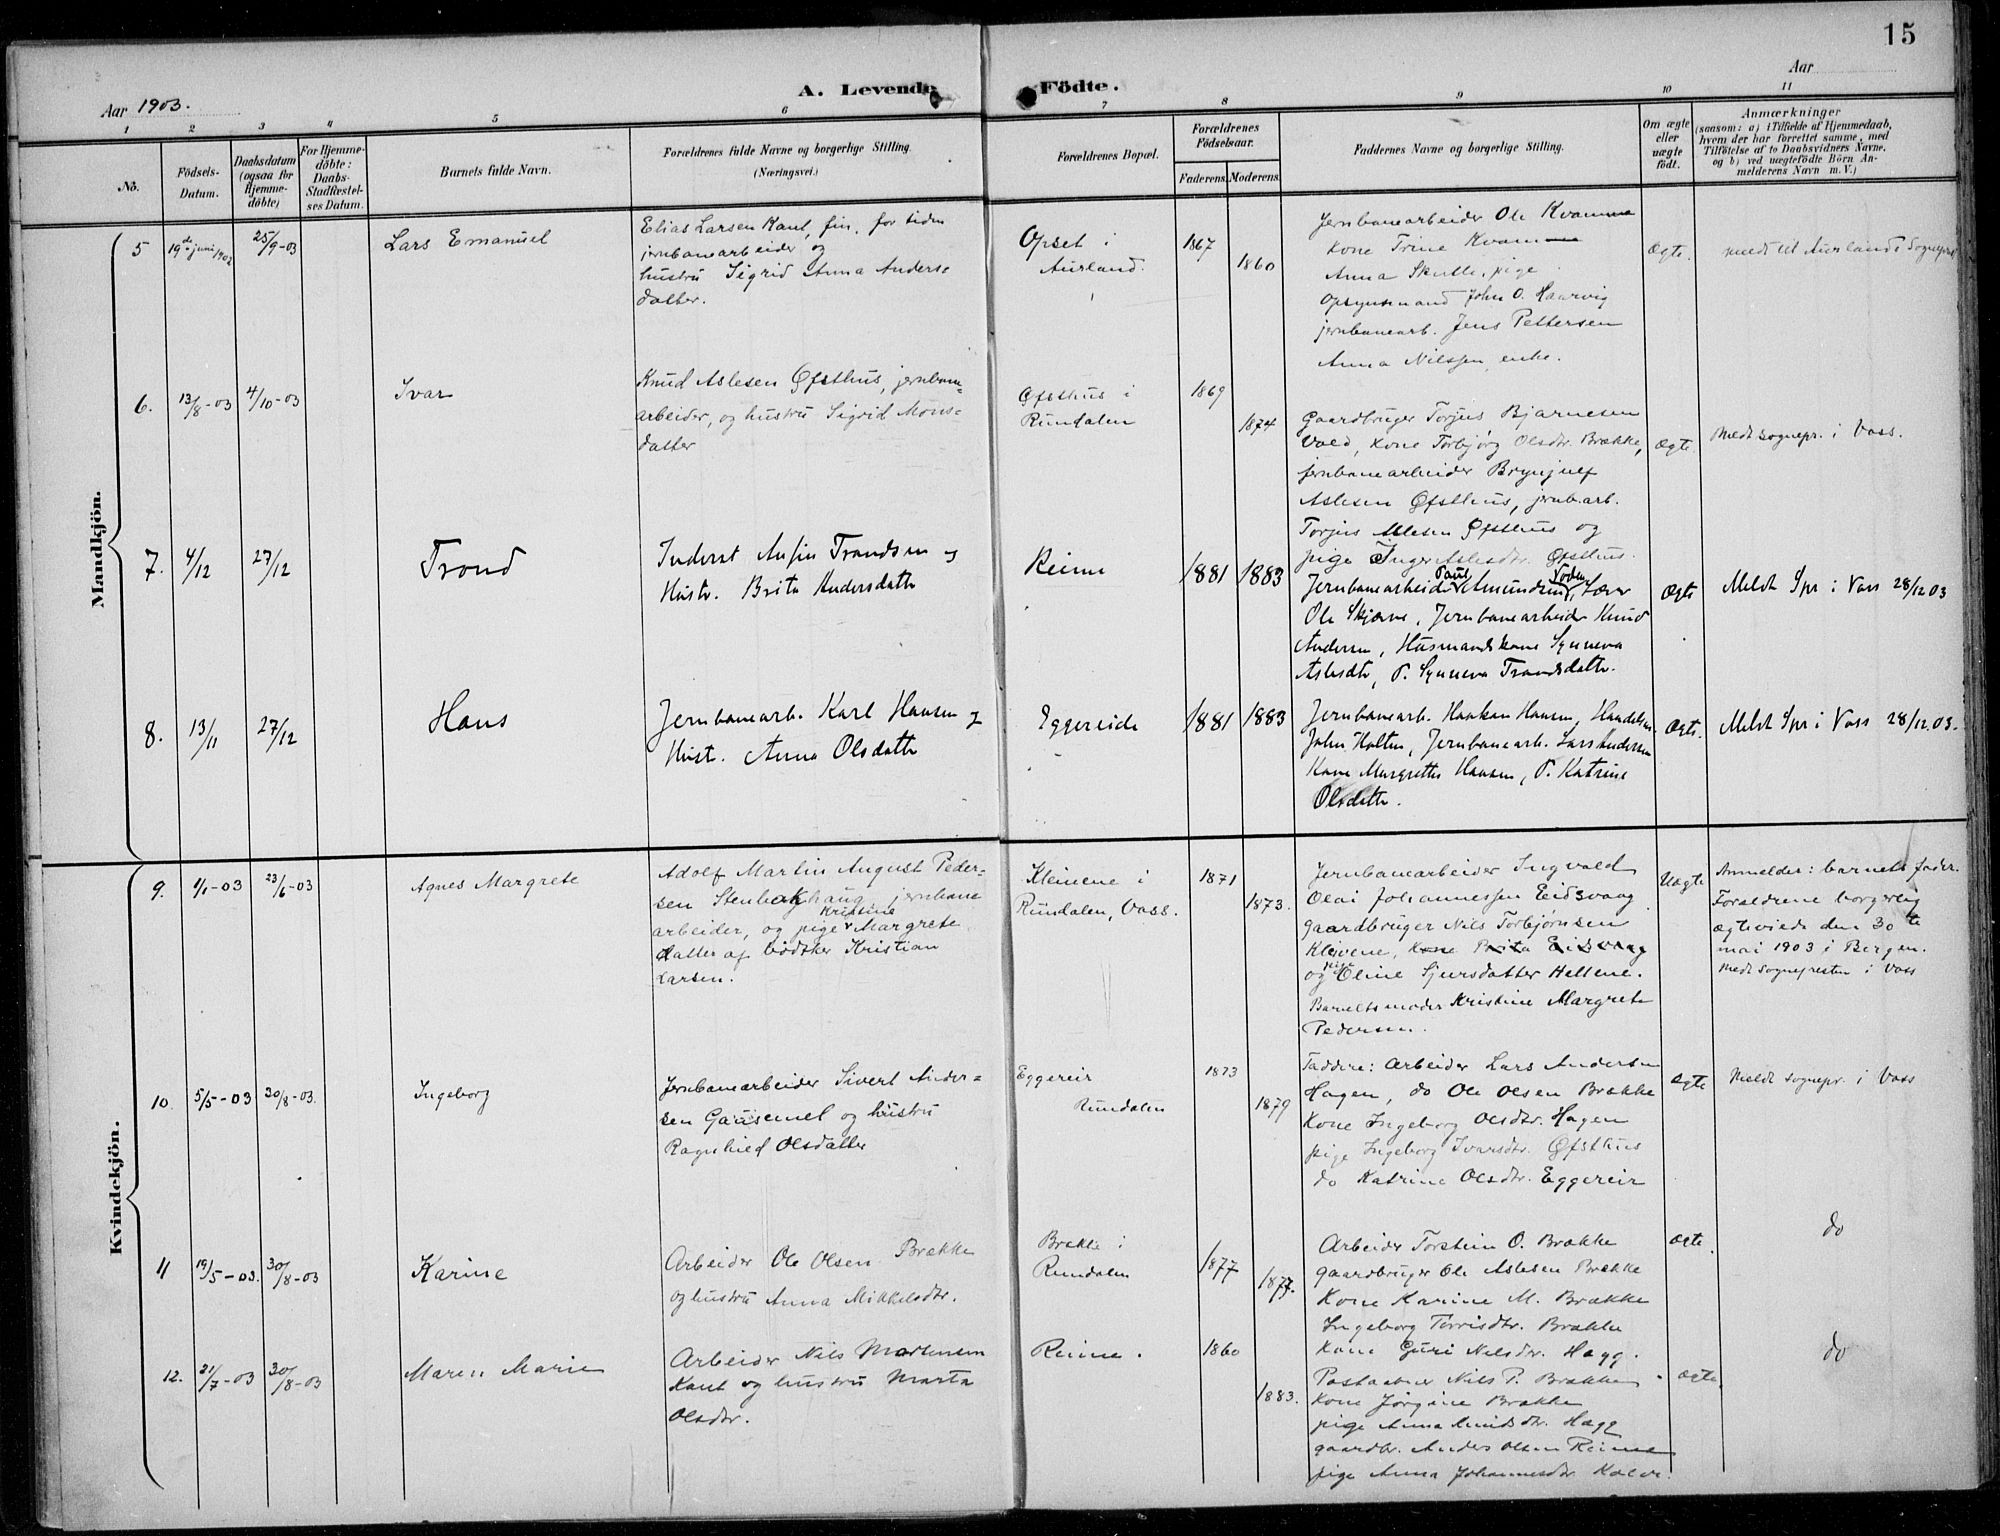 15
Aar 1903.
A. Levende Födte.
Aar
1 2 3 4 5 6 7 8 9 10 11
No.
Födsels-
Datum.
Daabsdatum
(ogsaa for
Hjemme-
döbte)
For Hjemme-
döbte:
Daabs-
Stadfæstel-
ses Datum.
Barnets fulde Navn.
Forældrenes fulde Navne og borgerlige Stilling.
(Næringsvei.)
Forældrenes Bopæl.
Forældrenes
Födselsaar.
Faderens.
Moderens.
Faddernes Navne og borgerlige Stilling.
Om ægte
eller
uægte
födt.
Anmærkninger
(saasom: a) i Tilfælde af Hjemmedaab,
hvem der har forrettet samme, med
Tilföielse af to Daabsvidners Navne,
og b) ved uægtefödte Börn An-
melderens Navn m. V.)
Mandkjön.
5
19de juni 1902
25/9-03
Lars Emanuel
Elias Larsen Kant, fin, for tiden
jernbanearbeider og
hustru Sigrid Anna Anders-
datter.
Opset i
Aurland.
1867
1860
Jernbanearbeider Ole Kvamme
Kone Trine Kvamme
Anna Skutle, pige
Opsynsmand John O. Haarvig
jernbanearb. Jens Pettersen
Anna Nilssen, enke.
Ægte.
meldt til Aurlands Sognepr.
6.
13/8-03
4/10-03
Ivar
Knud Aslesen Øfsthus, jernbane-
arbeider, og hustru Sigrid Mons-
datter
Øfsthus i
Rundalen
1869
1874
Gaardbruger Torjus Bjarnesen
Vold, kone Torbjørg Olsdtr. Brække,
jernbanearbeider Brynjulf
Aslesen Øfsthus, jernbarb.
Torjus Aslesen Øfsthus og
pige Inger Aslesdtr. Øfsthus.
Ægte
Meldt sognepr. i Voss.
7.
4/12
27/12
Trond
Inderst Anfin Trondsen og
Hustr. Brita Andersdatte
Reime
1881
1883
Jernbanearbeider Paul Amundsen, Lærer
Ole Skjerve, Jernbanearbeider Knud
Andersen, Husmandskone Synneva
Aslesdtr, P. Synneva Trondsdatte.
Ægte
Meldt Spr i Voss 28/12 03
8.
13/11
27/12
Hans
Jernbanearb. Karl Hansen og
Hust. Anna Olsdatte
Eggereide
1881
1883
Jernbanearb. Haakan Hansen, Handelsm.
John Holten, Jernbanearb. Lars Andersen
Kone Margrethe Hansen, P. Katrine
Olsdatte.
Ægte.
Meldt Spr i Voss 28/12.03.
Kvindekjön.
9.
1/1-03
23/6-03
Agnes Margrete
Adolf Martin August Peder-
sen Stenhakhaug, jernbane
arbeider, og pige Kristine Margrete
datter af bødtker Kristian
Larsen.
Kleivene i
Rundalen, Voss.
1871
1873.
Jernbanearbeider Ingvald
Olai Johannessen Eidsvaag
gaardbruger Nils Torbjørnsen
Kleivene, kone Brita Eidsvaag
og pige Oline Sjursdatter Hellene.
Barnets moder Kristine Margrete
Pedersen.
Uægte
Anmelder: barnets fader.
Forældrene borgerlig
ægteviede den 30te
mai 1903 i Bergen.
Meldt sognepresten i Voss
10.
5/5-03
30/8-03.
Ingeborg
Jernbanearbeider Sivert Ander-
sen Gaasemel og hustru
Ragnhild Olsdatter
Eggereir
Rundalen
1873
1879
Faddere: Arbeider Lars Andersen
Hagen, do Ole Olsen Brække
Kone Ingeborg Olsdtr. Hagen
pige Ingeborg Ivarsdtr. Øfsthus
do Katrine Olsdtr. Eggereir
Ægte
Meldt sognepr. i Voss
11
19/5-03.
30/8-03
Karine
Arbeider Ole Olsen Brække
og hustru Anna Mikkelsdtr.
Brække i
Rundalen
1877
1877.
Arbeider Torstein O. Brække
gaardbruger Ole Aslesen Brække
Kone Karine M. Brække
Ingeborg Torrisdtr. Brække
Ægte.
do
12.
21/7-03
30/8-03
Maren Marie
Arbeider Nils Mortensen
Kant og hustru Marta
Olsdtr.
Reime.
1860
1883.
Kone Guri Nilsdtr. Hagg.
Postaabner Nils P. Brække
Kone Jørgine Brække
pige Anna Knudsdtr. Hagg
gaardbr. Anders Olsen Reime
pige Anna Johannesdtr.
Ægte.
do